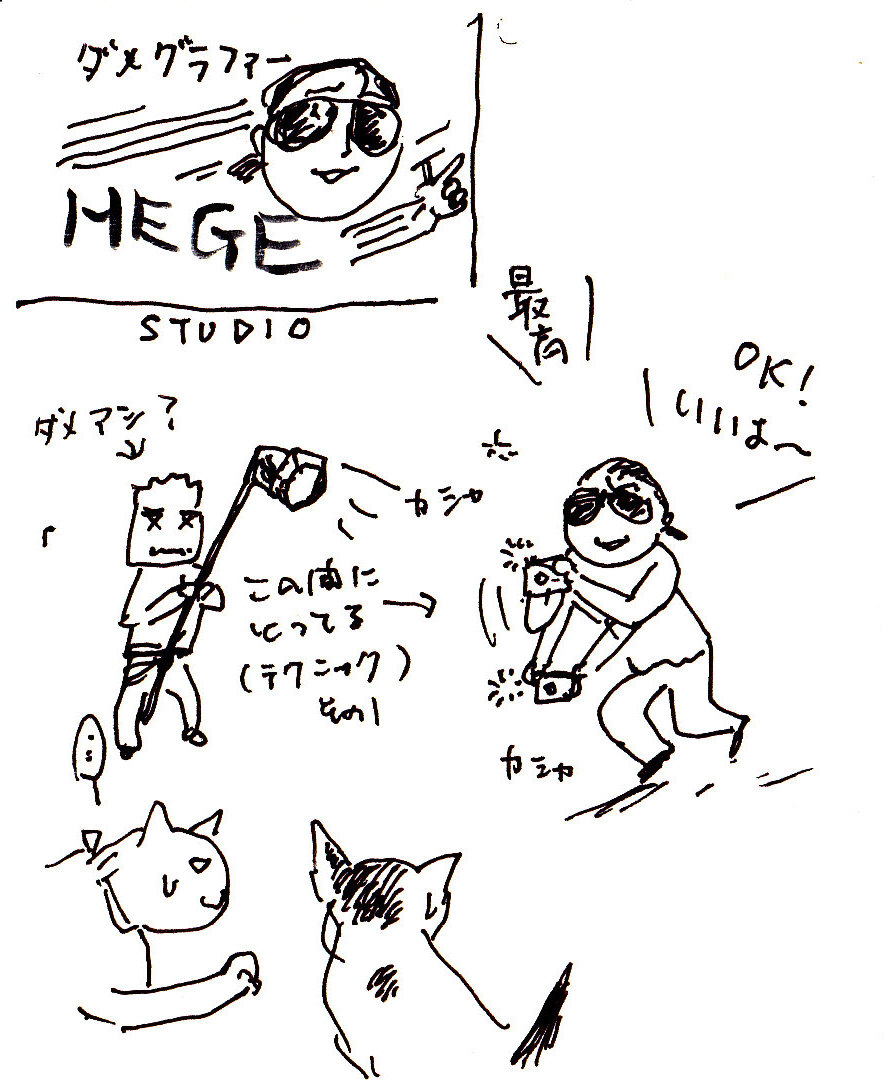 ダメグラファー
HEGE
STUDIO
最高
OK!
いいよ〜
ダメアシ?
カシャ
この間に
とってる
(テクニック)
その1
カシャ